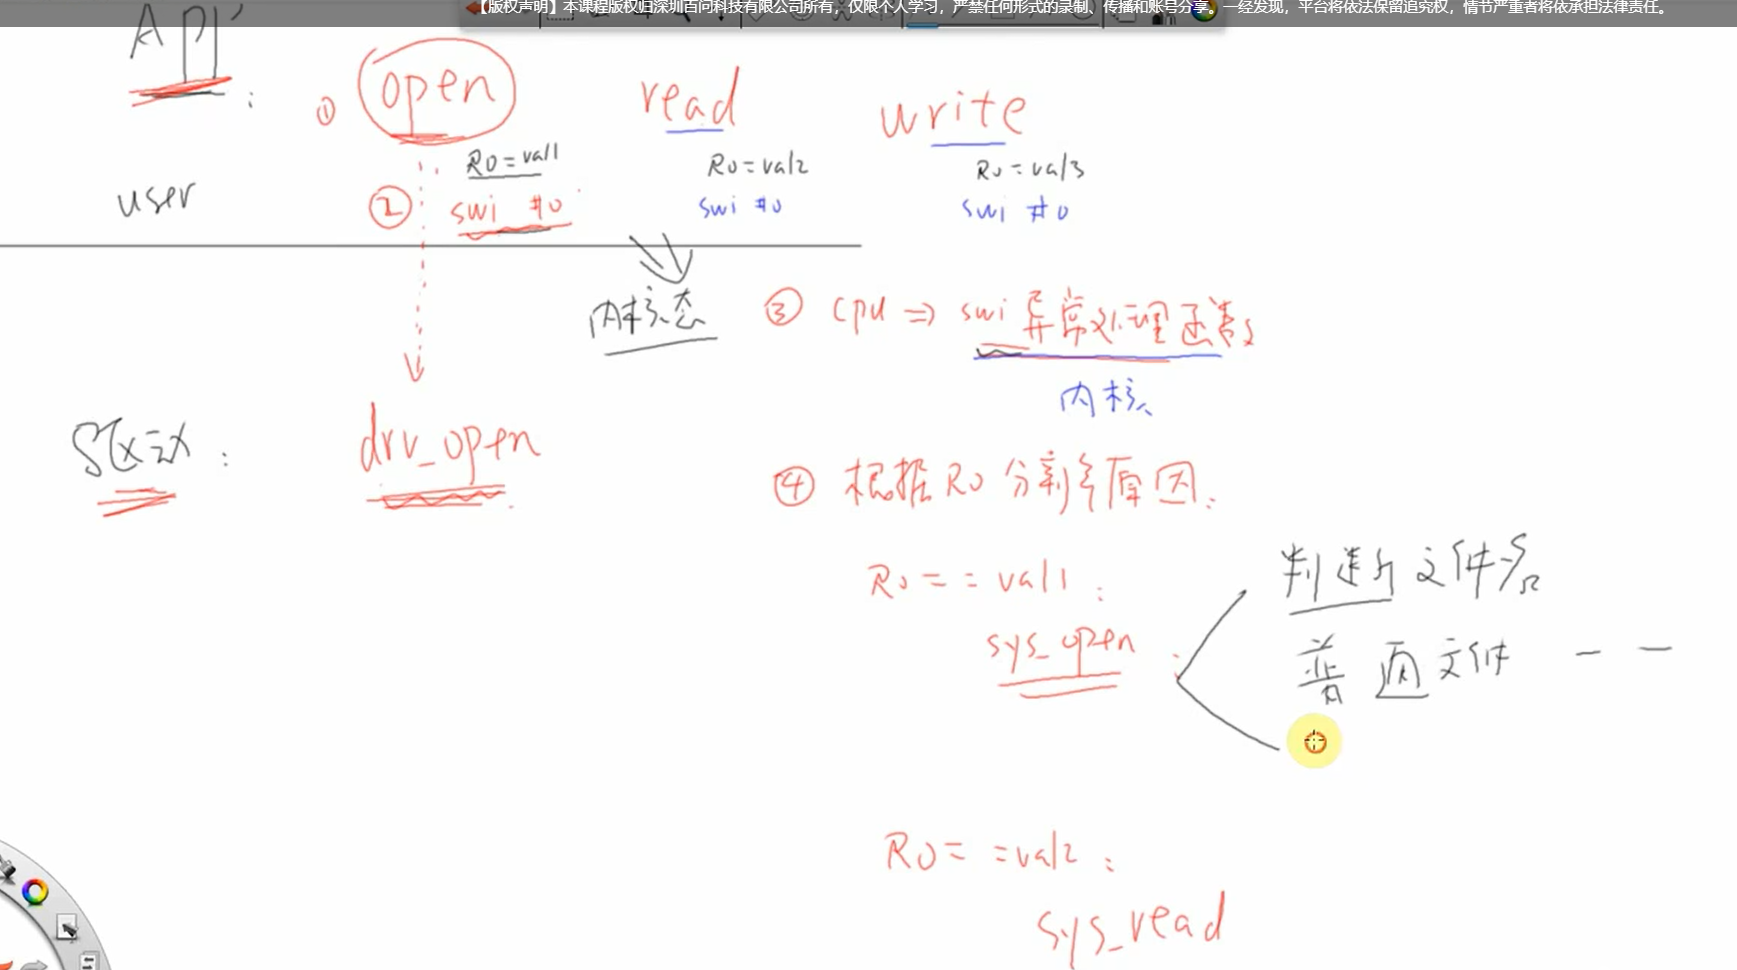 【版权声明】本课程版权归深圳百问科技有限公司所有，仅限个人学习，严禁任何形式的录制、传播和账号分享。一经发现，平台将依法保留追究权，情节严重者将依承担法律责任。
API :
① open read write
R0=val1 R0=val2 R0=val3
user ② swi #0 swi #0 swi #0
内核态 ③ CPU => swi 异常处理函数
内核
驱动 : drv_open
④ 根据R0分辨原因:
R0 == val1 :
判断文件名
sys_open :
普通文件 — —
R0 == val2 :
sys_read